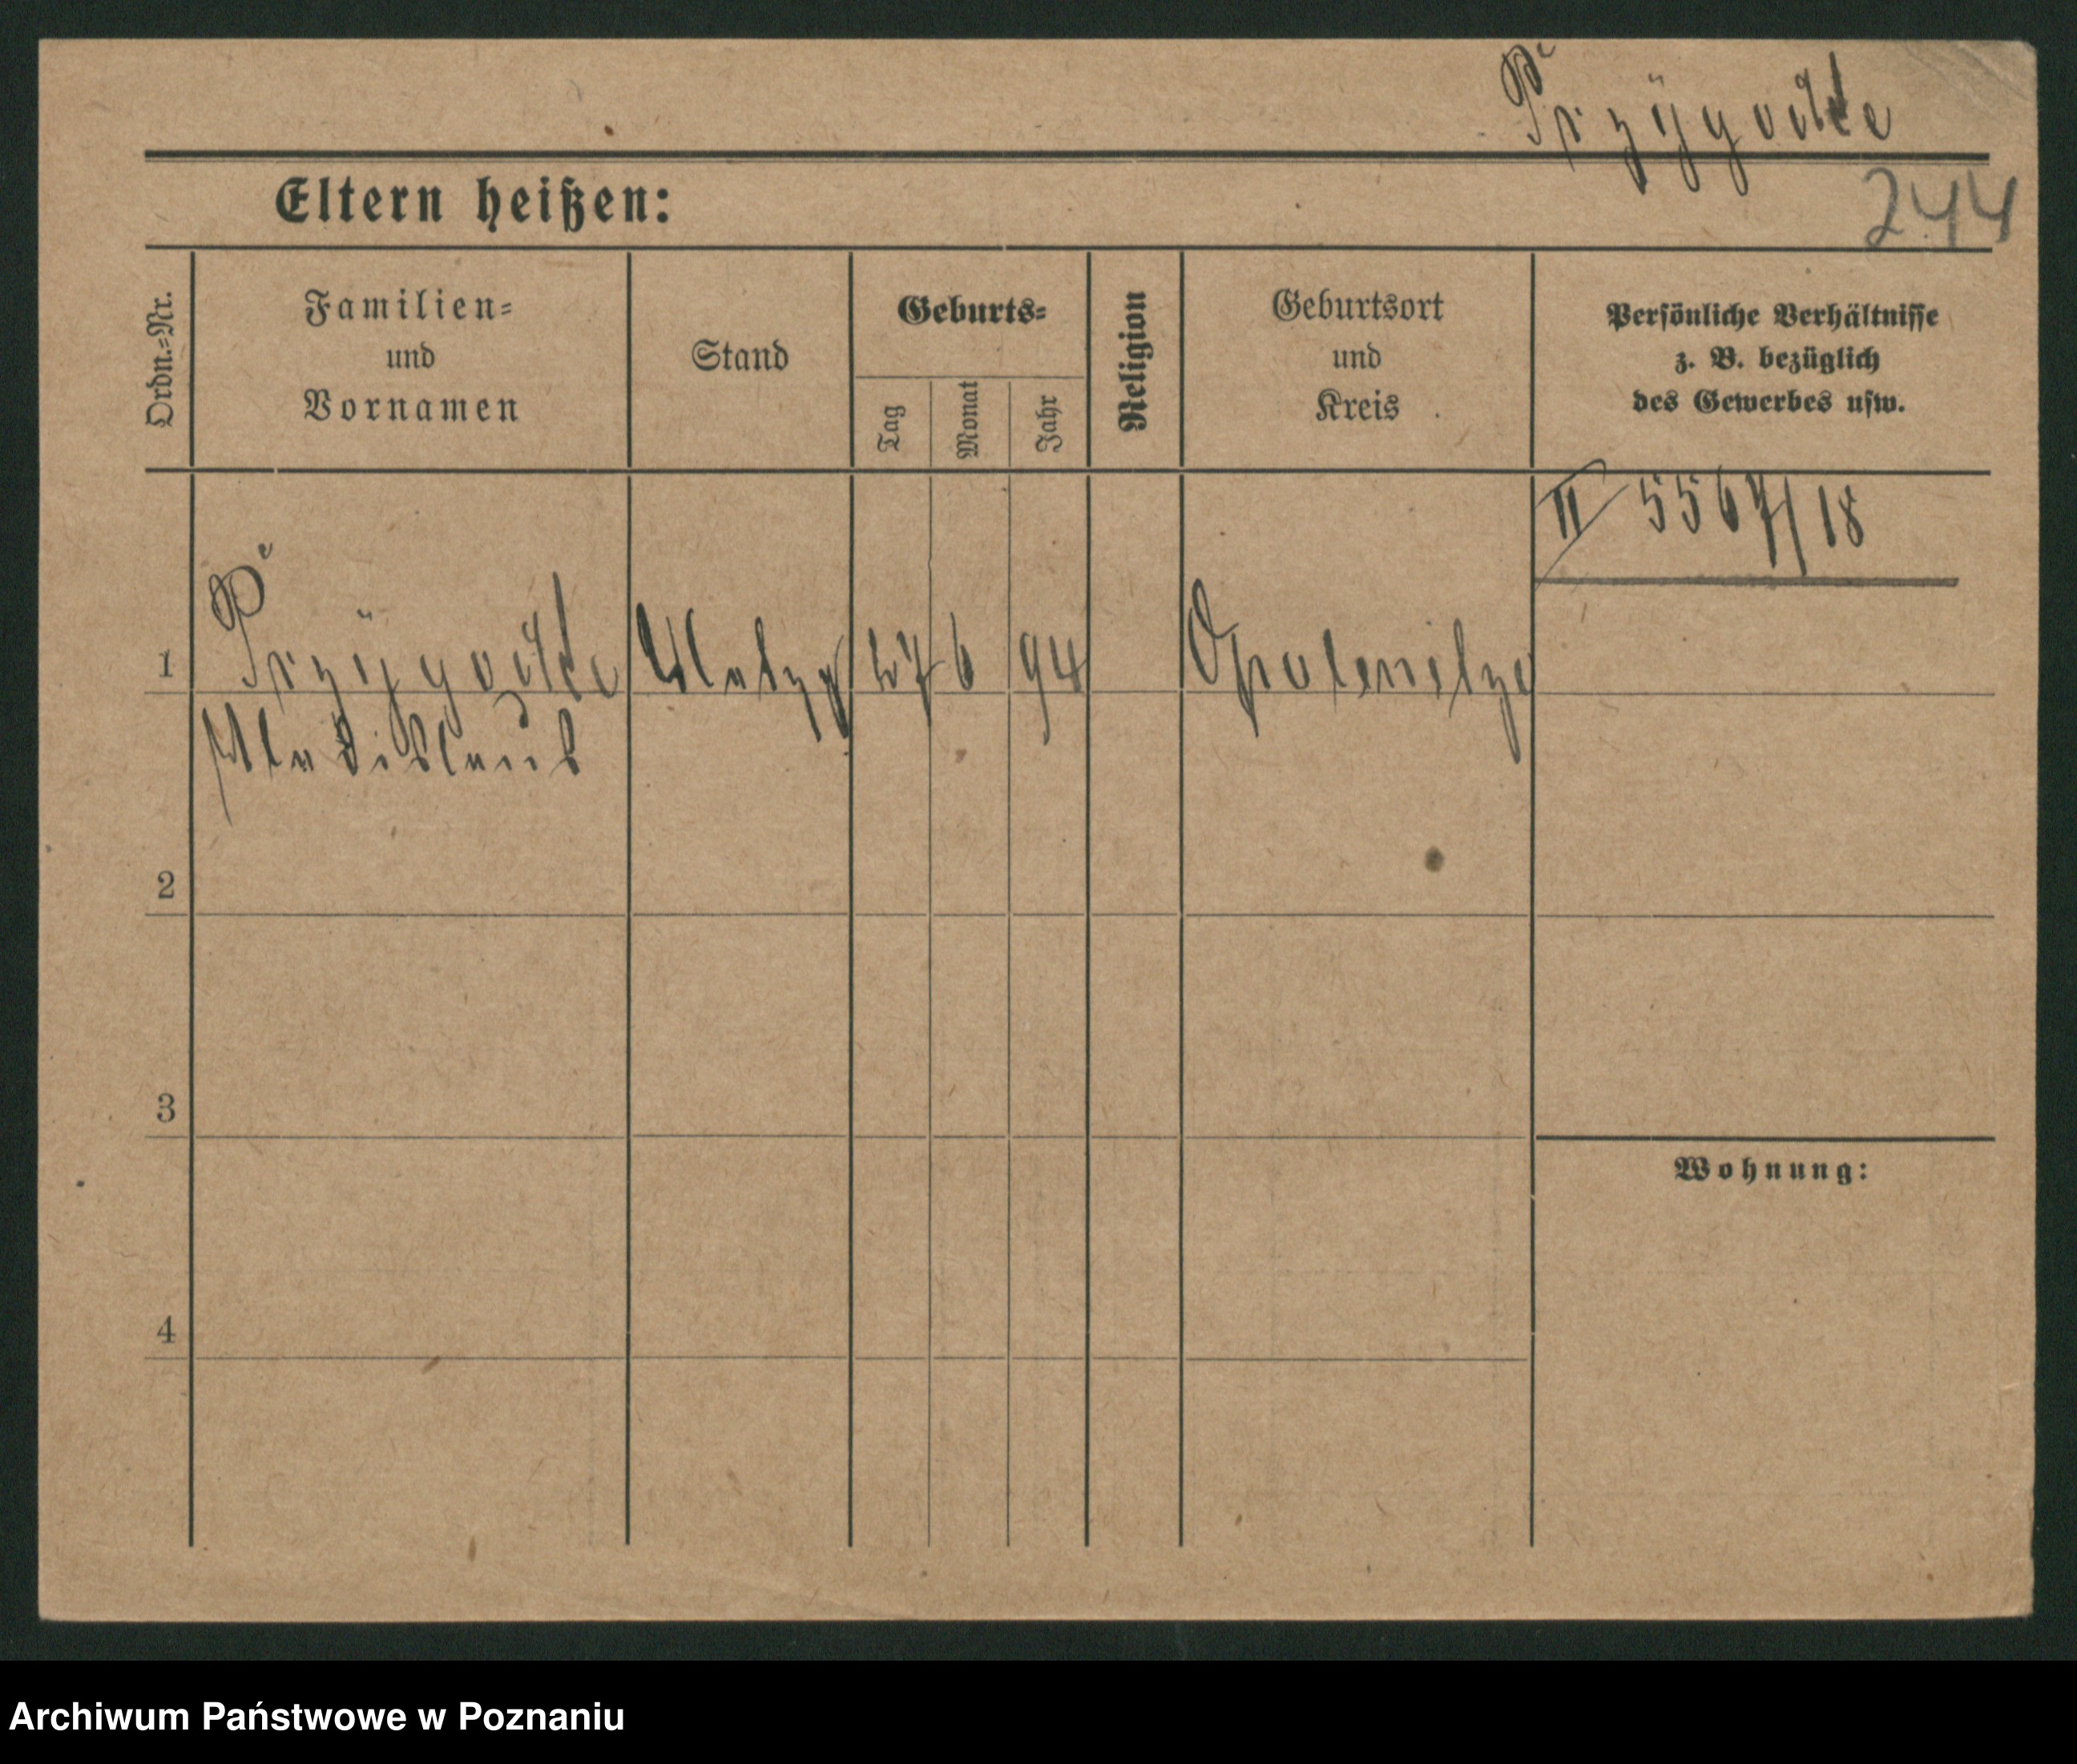 Przÿgodde
244
Eltern heißen:
Ordn.-Nr.
Familien-
und
Vornamen
Stand
Geburts-
Tag
Monat
Jahr
Religion
Geburtsort
und
Kreis
Persönliche Verhältnisse
z. B. bezüglich
des Gewerbes usw.
II 5567/18
1 Przÿgodde 27 6 94 Opalenitza
Wladislaus
2
3
Wohnung:
4
Archiwum Państwowe w Poznaniu